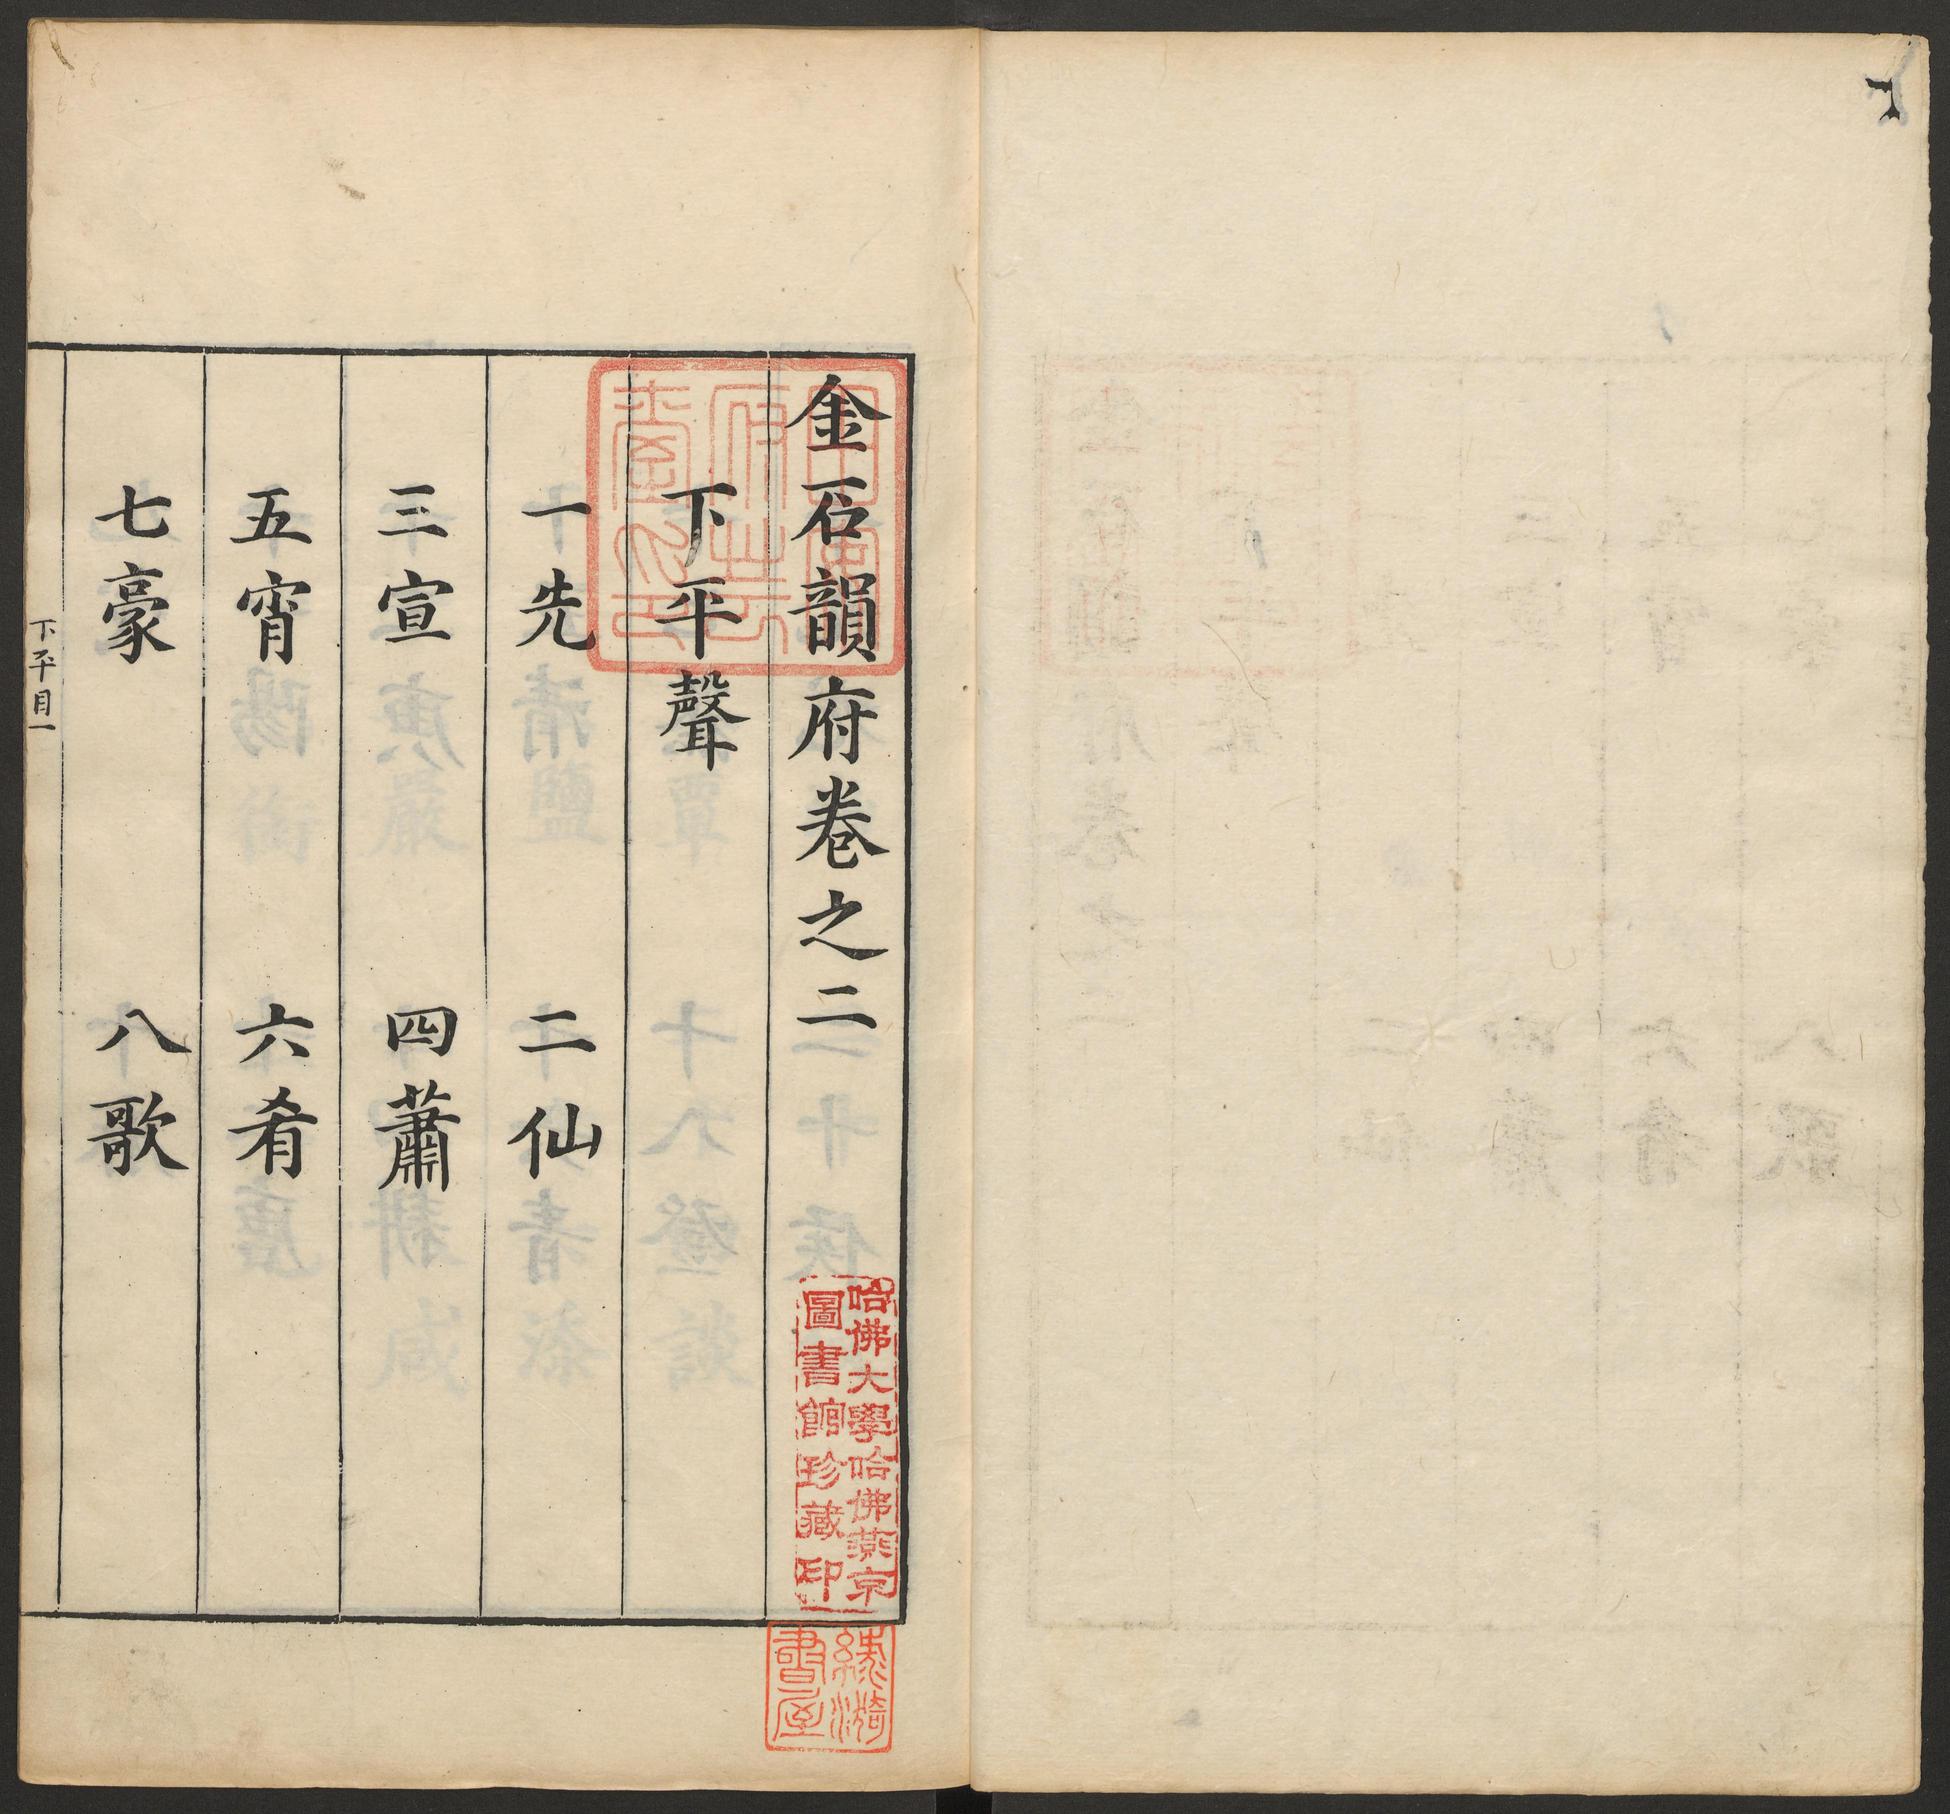 金石韻府卷之二
下平聲
一先 二仙
三宣 四蕭
五宵 六肴
七豪 八歌
下平目一
哈佛大學哈佛燕京
圖書館珍藏印
綠漪
書屋